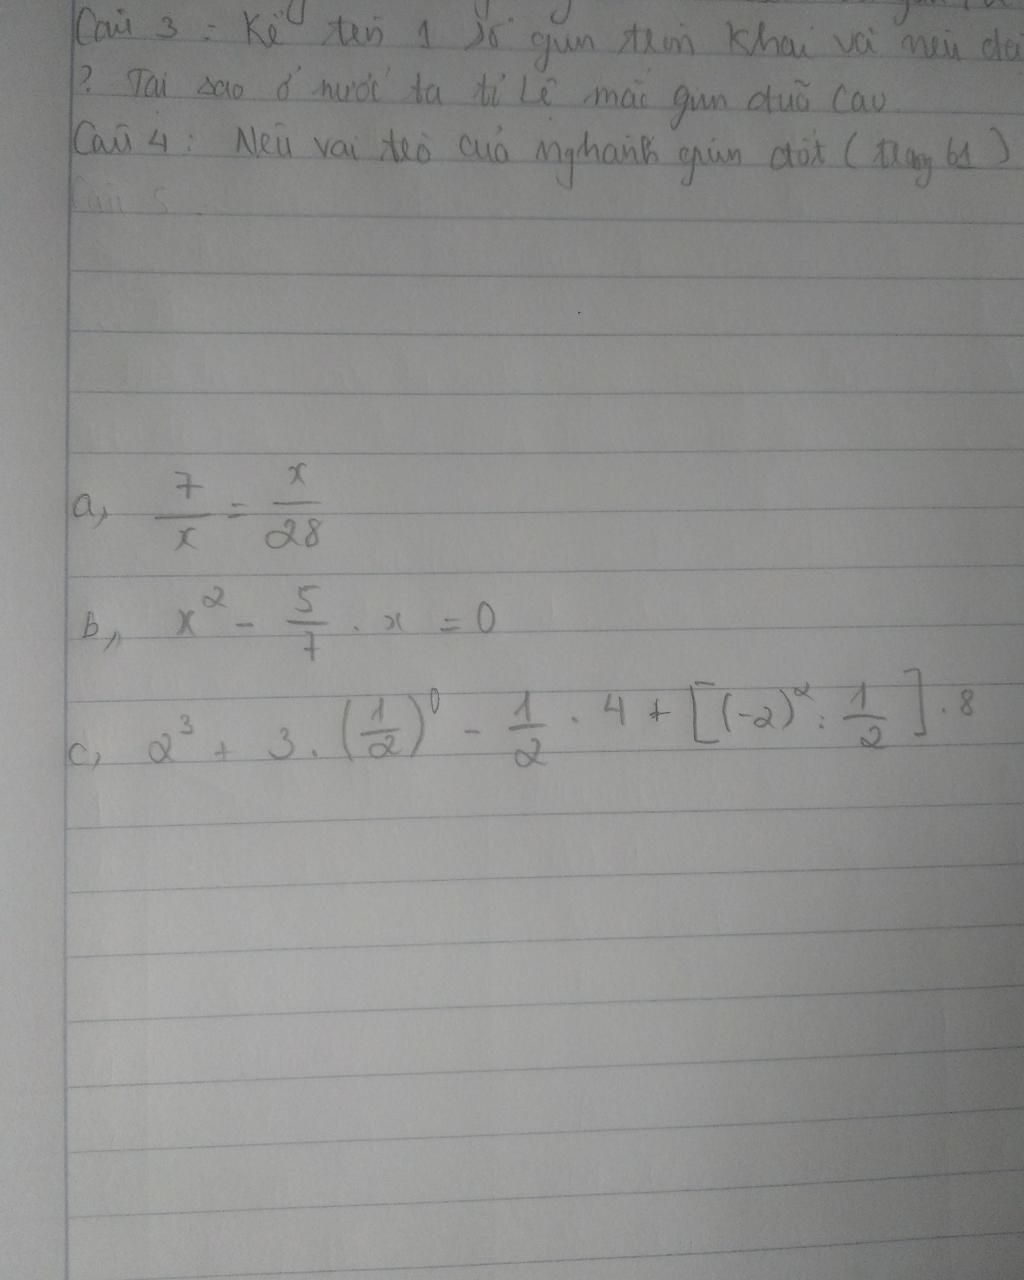 Câu 3 : Kể tên 1 số giun tròn khai và nêu đặ
? Tại sao ở nước ta tỉ Lệ mắc giun đũa Cao
Câu 4 : Nêu vai trò của Nghành giun đốt ( trang 61 )
Câu 5
a, 7/x = x/28
b, x² - 5/7 . x = 0
c, 2³ + 3 . (1/2)⁰ - 1/2 . 4 + [(-2)² : 1/2] . 8